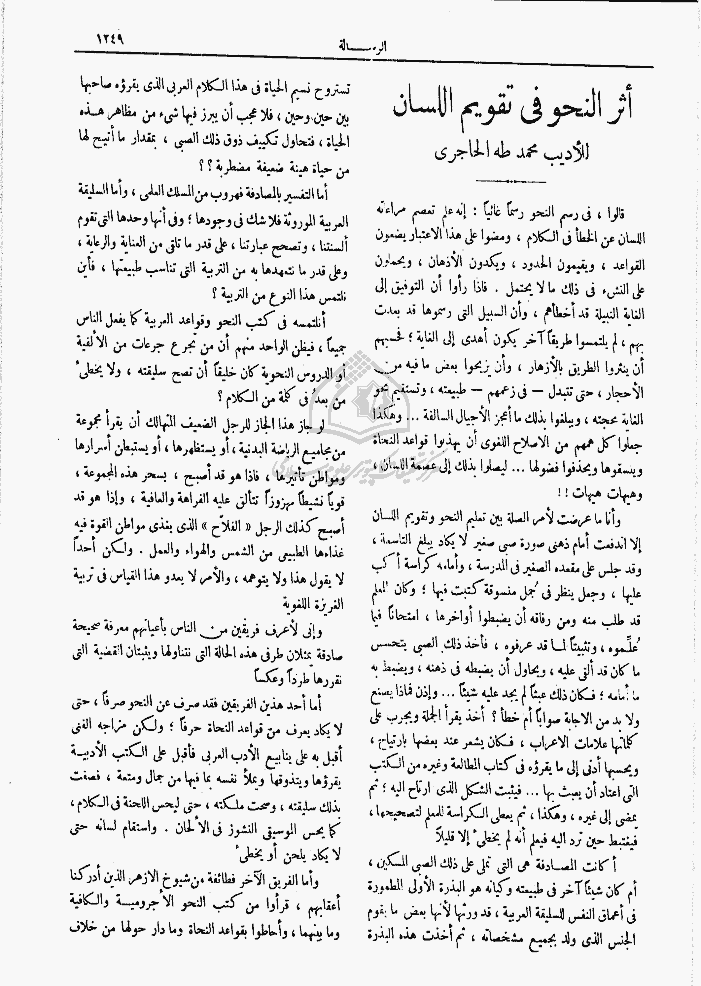 الرســـالة
١٢٤٩
أثر النحو فى تقويم اللسان
للأديب محمد طه الحاجرى
قالوا ، فى رسم النحو رسماً غائياً : إنه علم تعصم مراعاته
اللسان عن الخطأ فى الكلام ، ومضوا على هذا الاعتبار يضعون
القواعد ، ويقيمون الحدود ، ويكدون الأذهان ، ويحملون
على النشء فى ذلك ما لا يحتمل . فاذا رأوا أن التوفيق إلى
الغاية النبيلة قد أخطأهم ، وأن السبيل التى رسموها قد بعدت
بهم ، لم يلتمسوا طريقاً آخر يكون أهدى إلى الغاية ؛ فحسبهم
أن ينثروا الطريق بالأزهار ، وأن يزيحوا بعض ما فيه من
الأحجار ، حتى تتبدل — فى زعمهم — طبيعته ، وتستقيم نحو
الغاية محجته ، ويبلغوا بذلك ما أعجز الأجيال السالفة ... وهكذا
جعلوا كل همهم من الاصلاح اللغوى أن يهذبوا قواعد النحاة
وينسقوها ويحذفوا فضولها ... ليصلوا بذلك إلى عصمة اللسان ،
وهيهات هيهات !!
وأنا ما عرضت لأمر الصلة بين تعليم النحو وتقويم اللسان
إلا اندفعت أمام ذهنى صورة صبى صغير لا يكاد يبلغ التاسعة ،
وقد جلس على مقعده الصغير فى المدرسة ، وأمامه كراسة أكب
عليها ، وجعل ينظر فى جُمل منسوقة كتبت فيها ؛ وكان المعلم
قد طلب منه ومن رفاقه أن يضبطوا أواخرها ، امتحاناً فيما
عُلِّموه ، وتثبيتاً لما قد عرفوه ، فأخذ ذلك الصبى يتحسس
ما كان قد ألقى عليه ، ويحاول أن يضبطه فى ذهنه ، ويضبط به
ما أمامه ؛ فكان ذلك عبثاً لم يجد عليه شيئاً ... وإذن فماذا يصنع
ولا بد من الاجابة صواباً أم خطأ ؟ أخذ يقرأ الجملة ويجرب على
كلماتها علامات الاعراب ، فكان يشعر عند بعضها بارتياح ،
ويحسبها أدنى إلى ما يقرؤه فى كتاب المطالعة وغيره من الكتب
التى اعتاد أن يعبث بها ... فيثبت الشكل الذى ارتاح اليه ؛ ثم
يمضى إلى غيره ، وهكذا ، ثم يعطى الكراسة للمعلم لتصحيحها ،
فيغتبط حين ترد اليه فيعلم أنه لم يخطئ إلا قليلاً
أكانت المصادفة هى التى تملى على ذلك الصبى المسكين ،
أم كان شيئاً آخر فى طبيعته وكيانه هو البذرة الأولى المطمورة
فى أعماق النفس للسليقة العربية ، قد ورثها لأنها بعض ما يقوم
الجنس الذى ولد بجميع مشخصاته ، ثم أخذت هذه البذرة
تستروح نسيم الحياة فى هذا الكلام العربى الذى يقرؤه صاحبها
بين حين وحين ، فلا عجب أن يبرز فيها شىء من مظاهر هذه
الحياة ، فتحاول تكييف ذوق ذلك الصبى ، بمقدار ما أتيح لها
من حياة هينة ضعيفة مضطربة ؟؟
أما التفسير بالمصادفة فهروب من المسلك العلمى ، وأما السليقة
العربية الموروثة فلا شك فى وجودها ؛ وفى أنها وحدها التى تقوم
ألسنتنا ، وتصحح عبارتنا ، على قدر ما تلقى من العناية والرعاية ،
وعلى قدر ما نتعهدها به من التربية التى تناسب طبيعتها ، فأين
نلتمس هذا النوع من التربية ؟
أنلتمسه فى كتب النحو وقواعد العربية كما يفعل الناس
جميعاً ، فيظن الواحد منهم أن من تجرع جرعات من الألفية
أو الدروس النحوية كان خليقاً أن تصح سليقته ، ولا يخطئ
من بعدُ فى كلمة من الكلام ؟
لو جاز هذا لجاز للرجل الضعيف المتهالك أن يقرأ مجموعة
من مجاميع الرياضة البدنية ، أو يستظهرها ، أو يستبطن أسرارها
ومواطن تأثيرها ، فاذا هو قد أصبح ، بسحر هذه المجموعة ،
قوياً نشيطاً مهزوزاً تتألق عليه الفراهة والعافية ، وإذا هو قد
أصبح كذلك الرجل « الفلاح » الذى يغذى مواطن القوة فيه
غذاءها الطبيعى من الشمس والهواء والعمل . ولكن أحداً
لا يقول هذا ولا يتوهمه ، والأمر لا يعدو هذا القياس فى تربية
الغريزة اللغوية
وإنى لأعرف فريقين من الناس بأعيانهم معرفة صحيحة
صادقة يمثلان طرفى هذه الحالة التى نتناولها ويثبتان القضية التى
نقررها طرداً وعكساً
أما أحد هذين الفريقين فقد صرف عن النحو صرفاً ، حتى
لا يكاد يعرف من قواعد النحاة حرفاً ؛ ولكن مزاجه الفنى
أقبل به على ينابيع الأدب العربى فأقبل على الكتب الأدبية
يقرؤها ويتذوقها ويملأ نفسه بما فيها من جمال ومتعة ، فصفت
بذلك سليقته ، وصحت ملكته ، حتى ليحس اللحنة فى الكلام ،
كما يحس الموسيقى النشوز فى الألحان . واستقام لسانه حتى
لا يكاد يلحن أو يخطئ
وأما الفريق الآخر فطائفة من شيوخ الأزهر الذين أدركنا
أعقابهم ، قرأوا من كتب النحو الأجرومية والكافية
وما بينهما ، وأحاطوا بقواعد النحاة وما دار حولها من خلاف